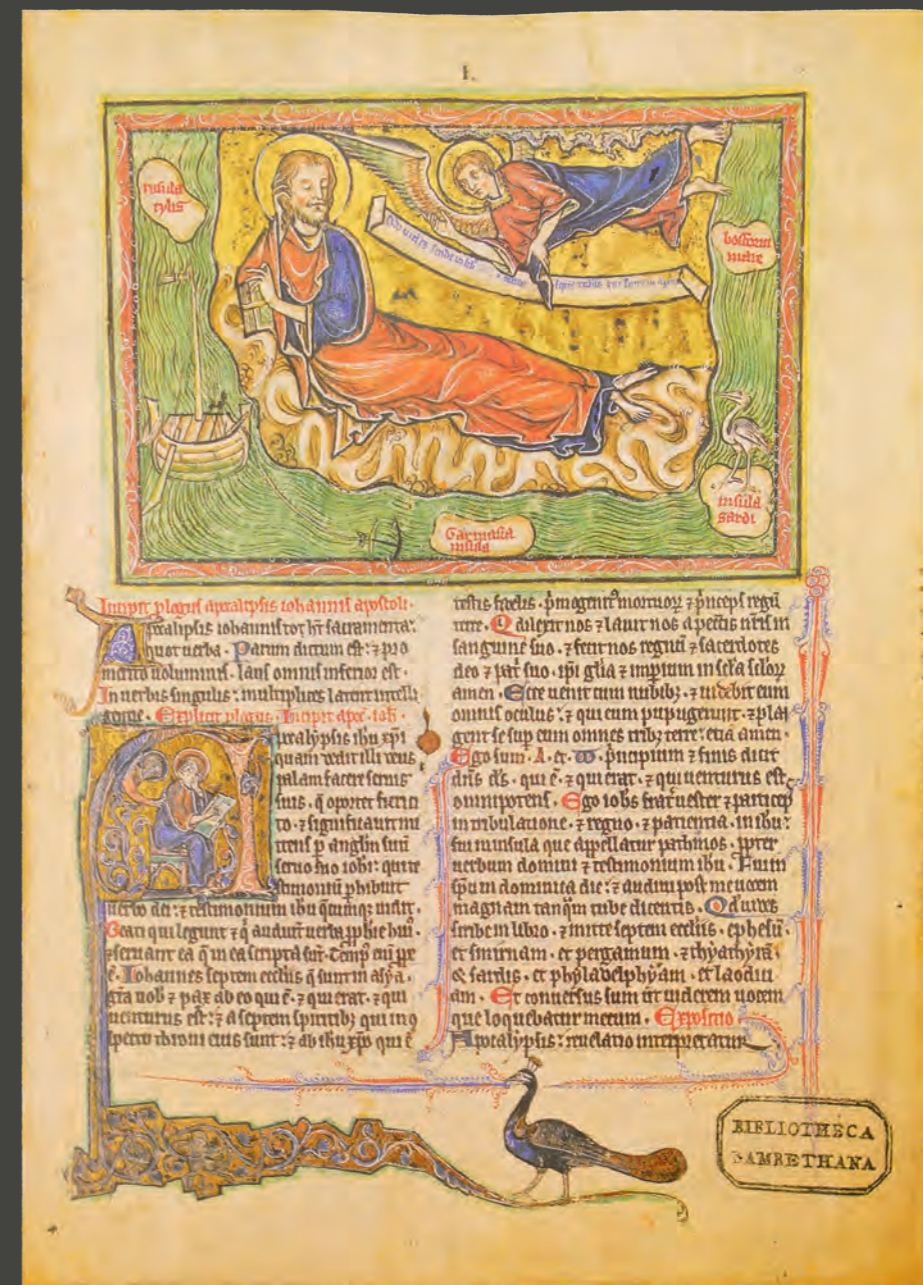 I.
insula
tylis
bosforum
mare
insula
sardi
Garmasia
insula
Incipit plogus apocalipsis iohannis apostoli·
Apocalipsis iohannis tot ht sacramenta:
quot uerba· Parum dictum est: ⁊ pro
merito uoluminis· laus omnis inferior est·
In uerbis singulis: multiplices latent intelli
gentie· Explicit plogus· Incipit apoc· ioh·
Apocalypsis ihu xpi
quam dedit illi deus
palam facere seruis
suis· q̄ oportet fieri ci
to· ⁊ significauit mi
ttens p anglm suū
seruo suo iohi: qui te
stimoniū phibuit
uerbo dei: ⁊ testimonium ihu q̄cumq; uidit·
Beati qui legunt ⁊ q̄ audiūt uerba pphie hui᷒
⁊ seruant ea q̄ in ea scripta sūt· Temp᷒ eni ꝓpe
ē· Iohannes septem eccliis q̄ sunt in asya·
grā uob ⁊ pax ab eo qui ē· ⁊ qui erat· ⁊ qui
uenturus est: ⁊ a septem spiritib; qui in ↄ
spectu throni eius sunt: ⁊ ab ihu xpo qui ē
testis fidelis· p̄mogenit᷒ mortuoꝝ ⁊ p̄nceps regū
terre· Qui dilexit nos ⁊ lauit nos a peccatis nr̄is in
sanguine suo· ⁊ fecit nos regnū ⁊ sacerdotes
deo ⁊ pat̄ suo· ipi glīa ⁊ imp̄ium in sc̄la sc̄loꝝ
amen· Ecce uenit cum nubib; ⁊ uidebit eum
omnis oculus: ⁊ qui eum pupugerunt· ⁊ plā
gent se sup eum omnes trib; terre: etiā amen·
Ego sum· A· et· ω· p̄ncipium ⁊ finis dicit
dn̄s ds̄· qui ē· ⁊ qui erat· ⁊ qui uenturus est
omnipotens· Ego iohs frat̄ uester ⁊ particep̄
in tribulatione· ⁊ regno· ⁊ patientia· in ihu:
fui in insula que appellatur pathmos· ꝓpter
uerbum domini ⁊ testimonium ihu· Fui in
sp̄u in dominica die: ⁊ audiui post me uocem
magnam tanq̄m tube dicentis· Qd̄ uides
scribe in libro· ⁊ mitte septem eccliis· ephesū·
et smirnam· et pergamum· ⁊ thyathyrā·
& sardis· et phyladelphyam· et laodici
am· Et conuersus sum ut uiderem uocem
que loquebatur mecum· Expositio·
Apocalypsis: reuelatio interpretatur
BIBLIOTHECA
LAMBETHANA